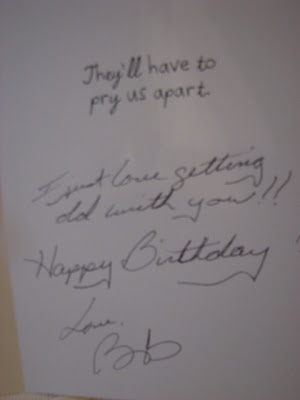 They'll have to
pry us apart.
I just love getting
old with you!!
Happy Birthday
Love,
Bob